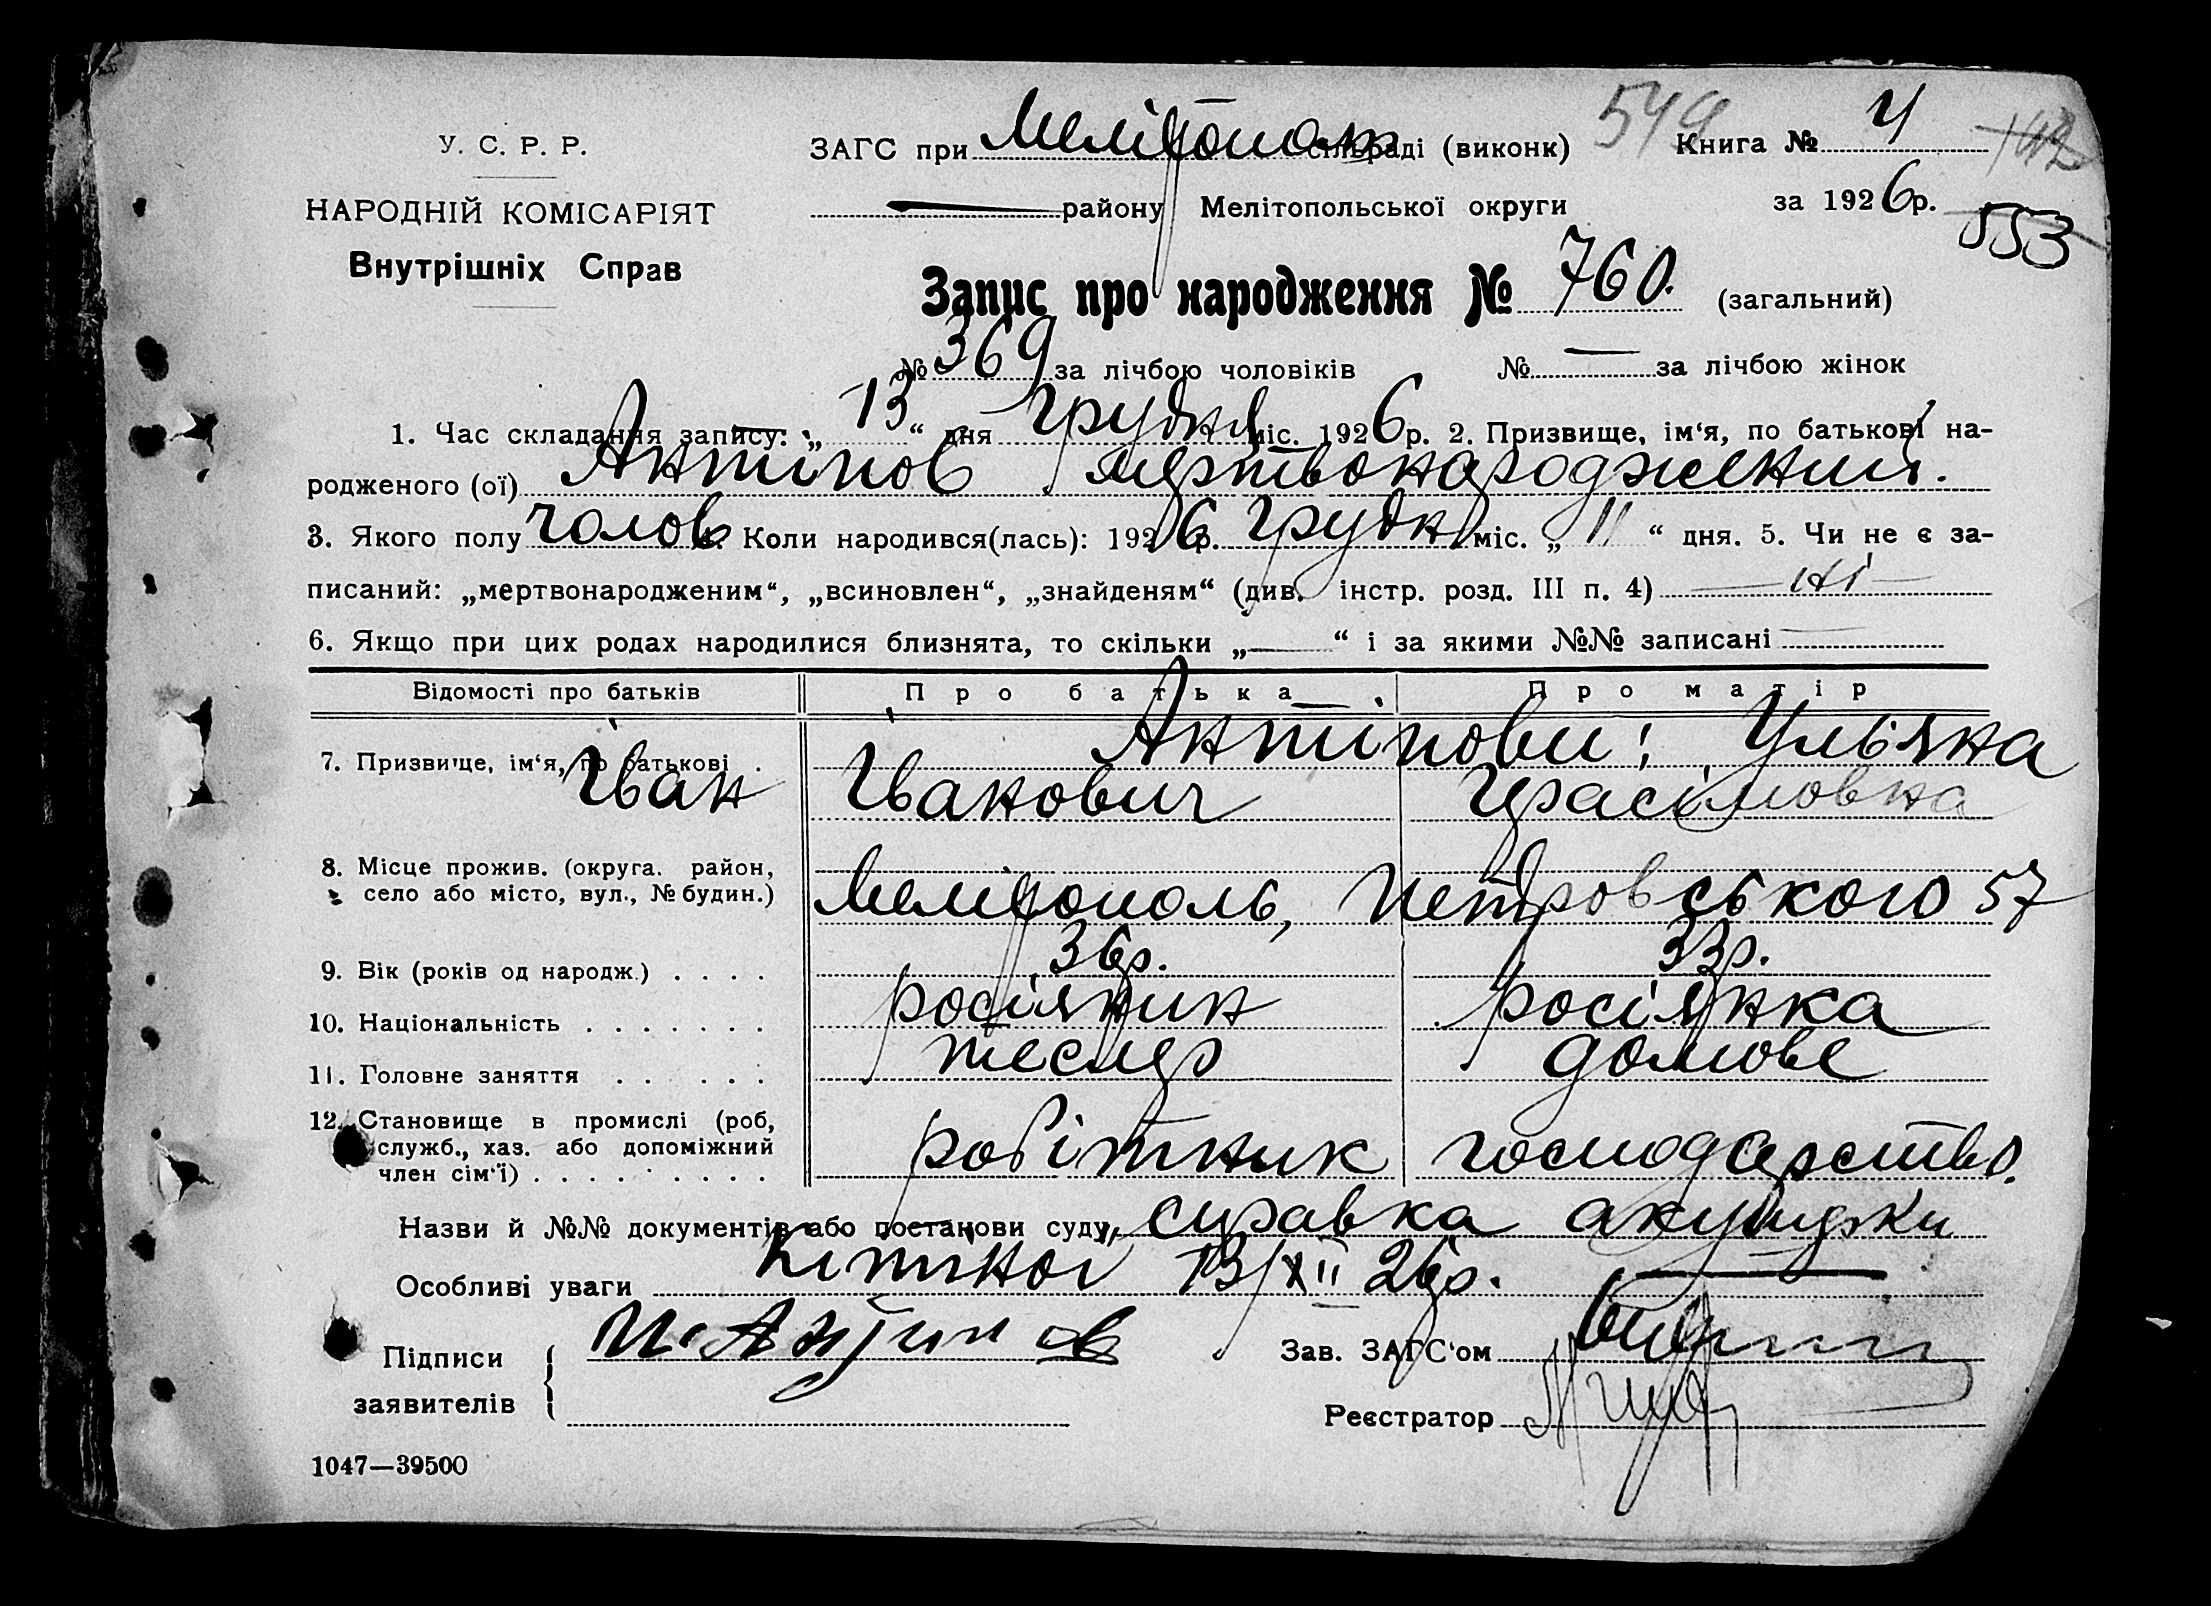 У. С. Р. Р.
НАРОДНІЙ КОМІСАРІЯТ
Внутрішніх Справ
ЗАГС при Мелітополь сільраді (виконк) 549 Книга № 4 142
району Мелітопольської округи за 1926 р. 553
Запис про народження № 760. (загальний)
№ 369 за лічбою чоловіків № — за лічбою жінок
1. Час складання запису: „13“ дня Грудня міс. 1926 р. 2. Призвище, ім‘я, по батькові на-
родженого (ої) Антіпов мертвонароджений.
3. Якого полу чолов. Коли народився(лась): 1926 р. Грудня міс. „11“ дня. 5. Чи не є за-
писаний: „мертвонародженим“, „всиновлен“, „знайденям“ (див. інстр. розд. III п. 4) — ні —
6. Якщо при цих родах народилися близнята, то скільки „—“ і за якими №№ записані —
Відомості про батьків Про батька Про матір
7. Призвище, ім‘я, по батькові . Антіпови: Ульяна
Іван Іванович Герасімовна
8. Місце прожив. (округа. район,
село або місто, вул., № будин.) Мелітополь, Петровського 57
9. Вік (років од народж.) . . . . 36 р. 33 р.
10. Національність . . . . . . . росіянин росіянка
11. Головне заняття . . . . . . тесляр домове
12. Становище в промислі (роб,
служб., хаз. або допоміжний
член сім‘ї) . . . . . . . . . робітник господарство.
Назви й №№ документів або постанови суду, справка акушерки
Особливі уваги 13/XII 26 р.
Підписи
заявителів И. Антипов
Зав. ЗАГС‘ом
Реєстратор
1047—39500